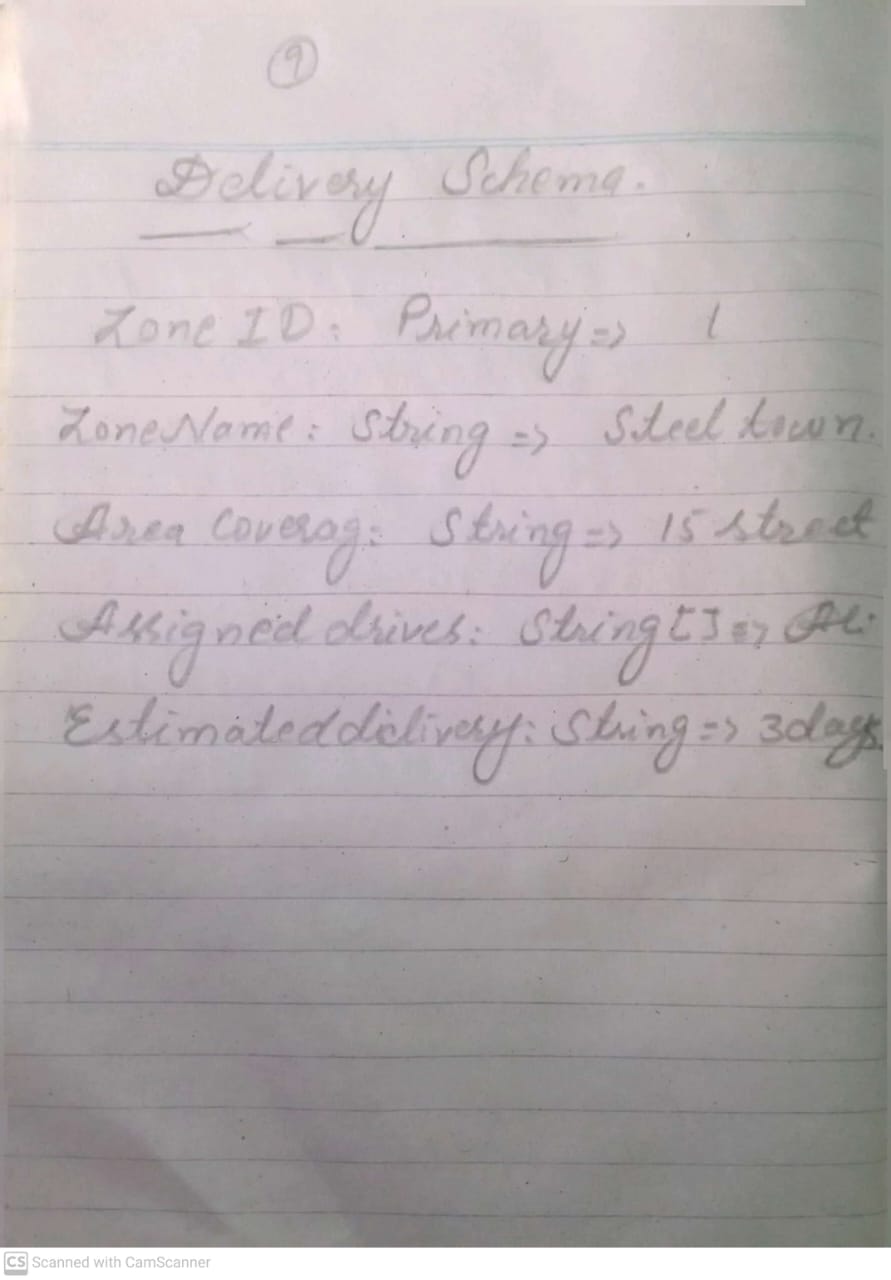 9
Delivery Schema.
Zone ID: Primary => 1
ZoneName: String => Steel town.
Area Coverag: String => 15 street
Assigned drives: String[] => Ali
Estimated delivery: String => 3days.
CS Scanned with CamScanner